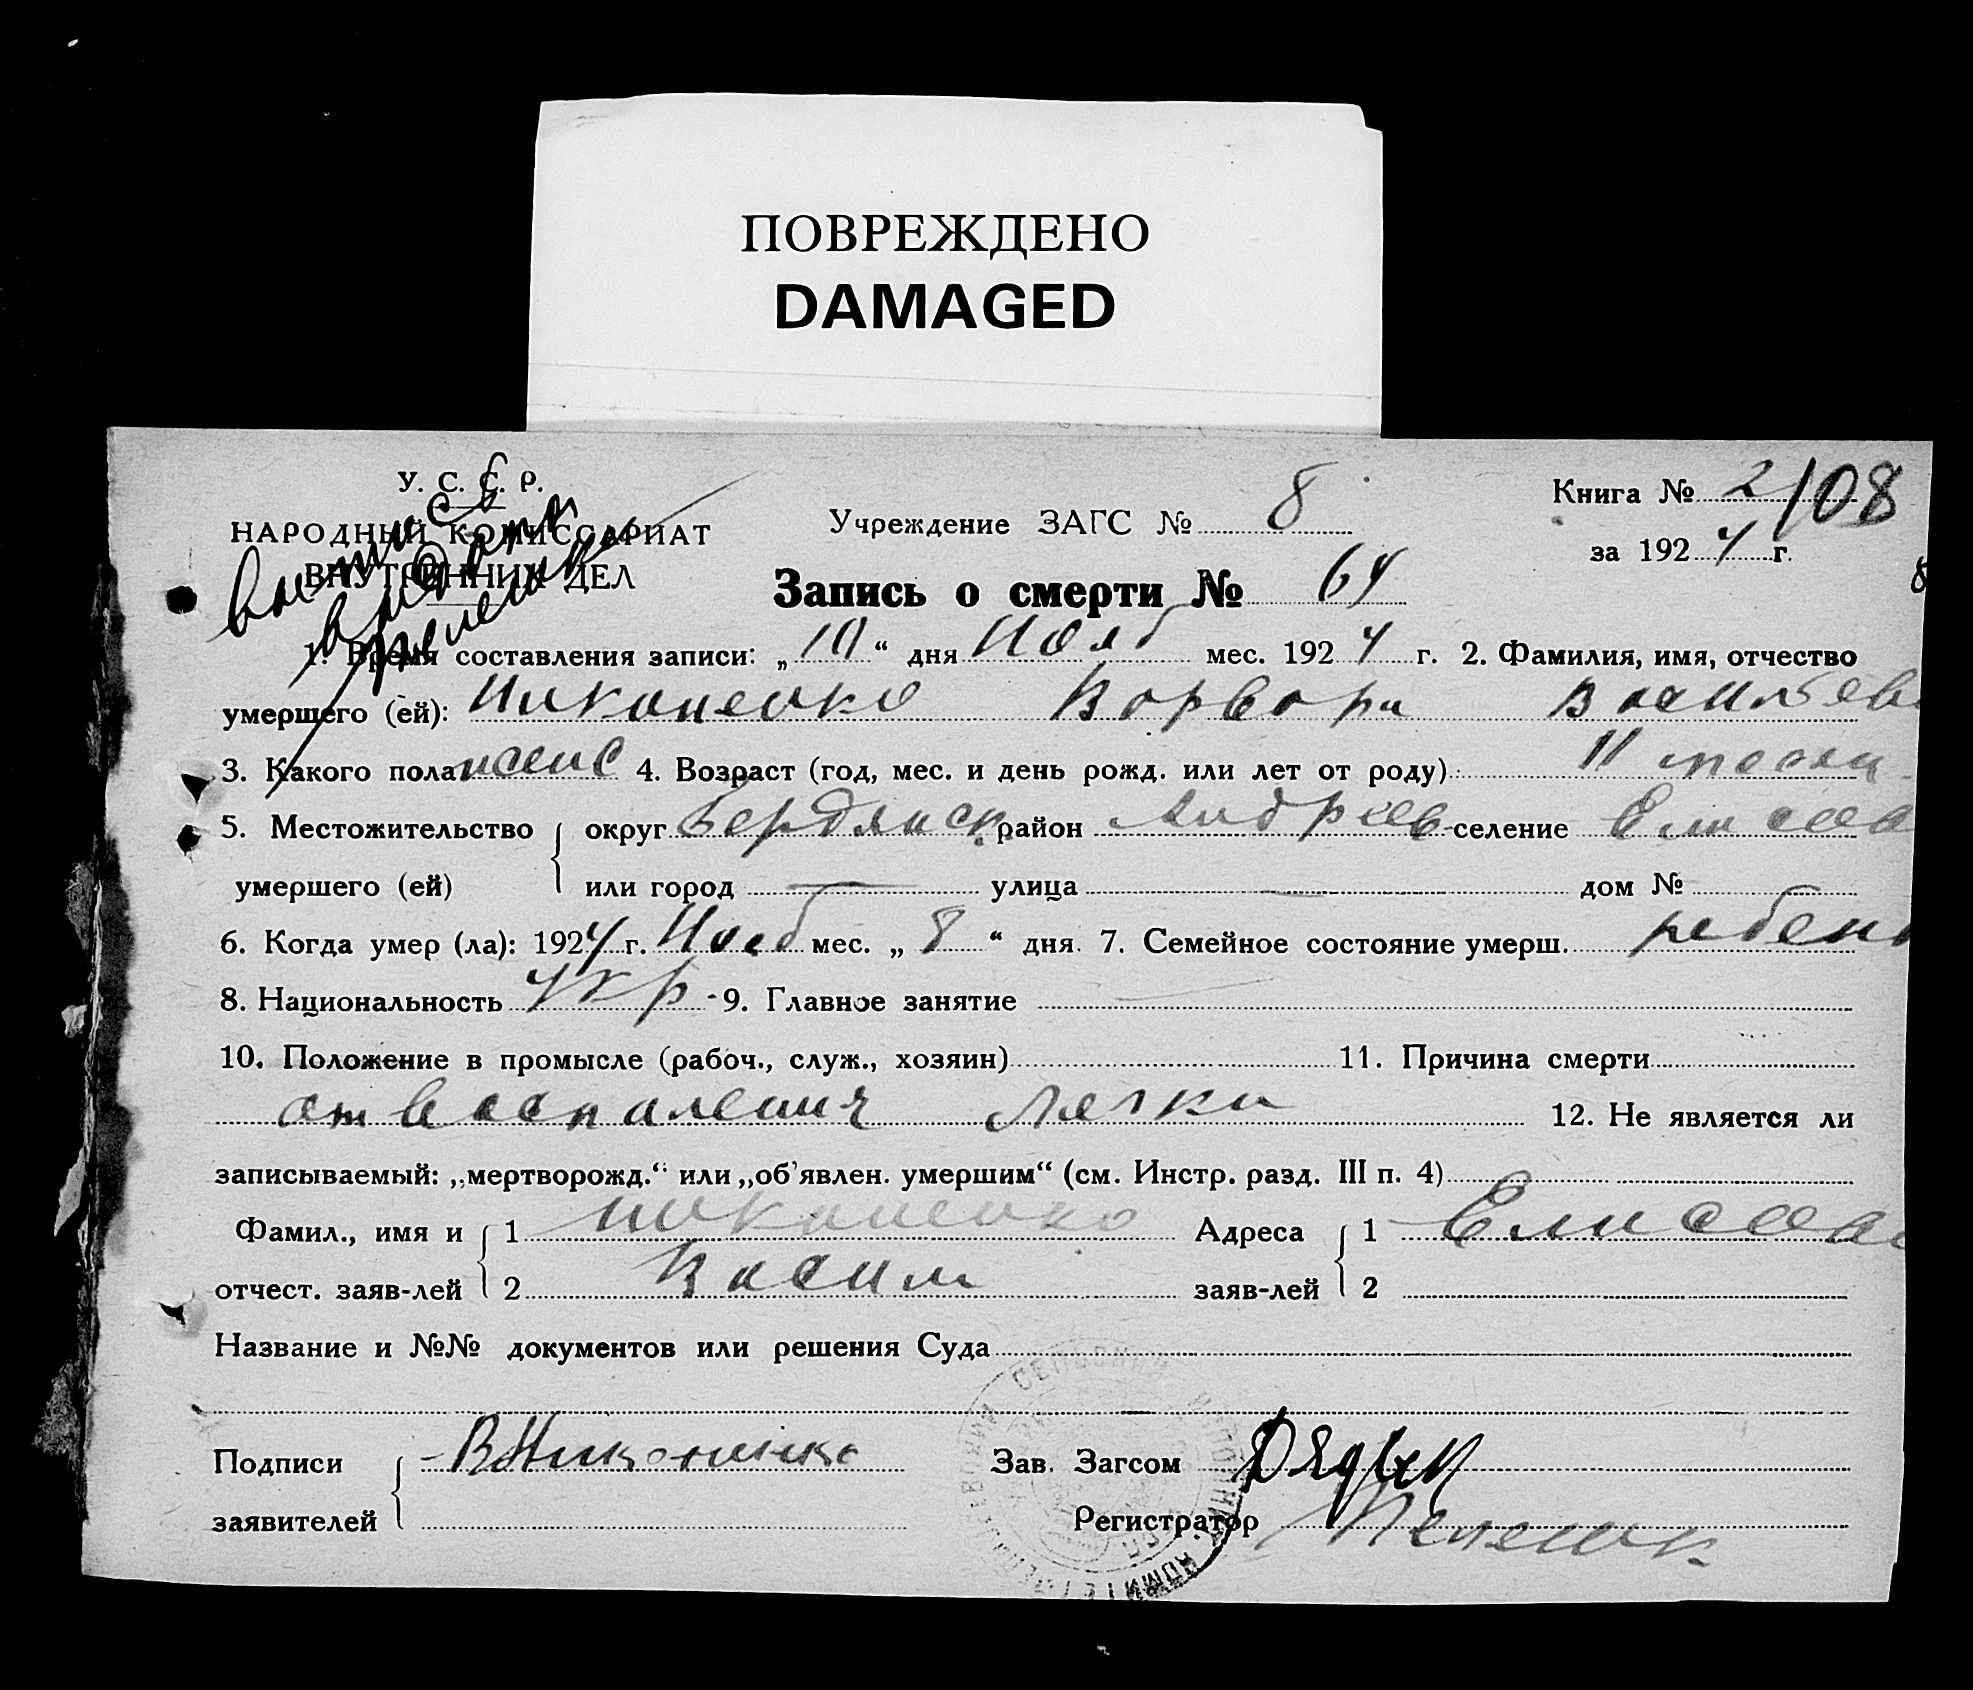 ПОВРЕЖДЕНО
DAMAGED
У. С. С. Р.
НАРОДНЫЙ КОМИССАРИАТ
ВНУТРЕННИХ ДЕЛ
Учреждение ЗАГС № 8
Книга № 2/108
за 1924 г.
Запись о смерти № 64
1. Время составления записи: „10“ дня Нояб мес. 1924 г. 2. Фамилия, имя, отчество
умершего (ей): Никоненко Варвара Васильев
3. Какого пола женс 4. Возраст (год, мес. и день рожд. или лет от роду): 11 месяц
5. Местожительство округ Бердянск район Андреев селение Елисав
умершего (ей) или город — улица — дом №
6. Когда умер (ла): 1924 г. Нояб мес. „8“ дня. 7. Семейное состояние умерш. ребен
8. Национальность укр - 9. Главное занятие
10. Положение в промысле (рабоч., служ., хозяин) 11. Причина смерти
от воспаления Легки 12. Не является ли
записываемый: „мертворожд.“ или „об'явлен. умершим“ (см. Инстр. разд. III п. 4)
Фамил., имя и 1 Никоненко Адреса 1 Елисав
отчест. заяв-лей 2 Васил заяв-лей 2
Название и №№ документов или решения Суда
Подписи В Никоненко Зав. Загсом
заявителей Регистратор